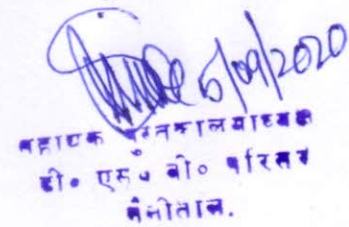 5/09/2020
सहायक पुस्तकालयाध्यक्ष
डी० एस० बी० परिसर
नैनीताल.